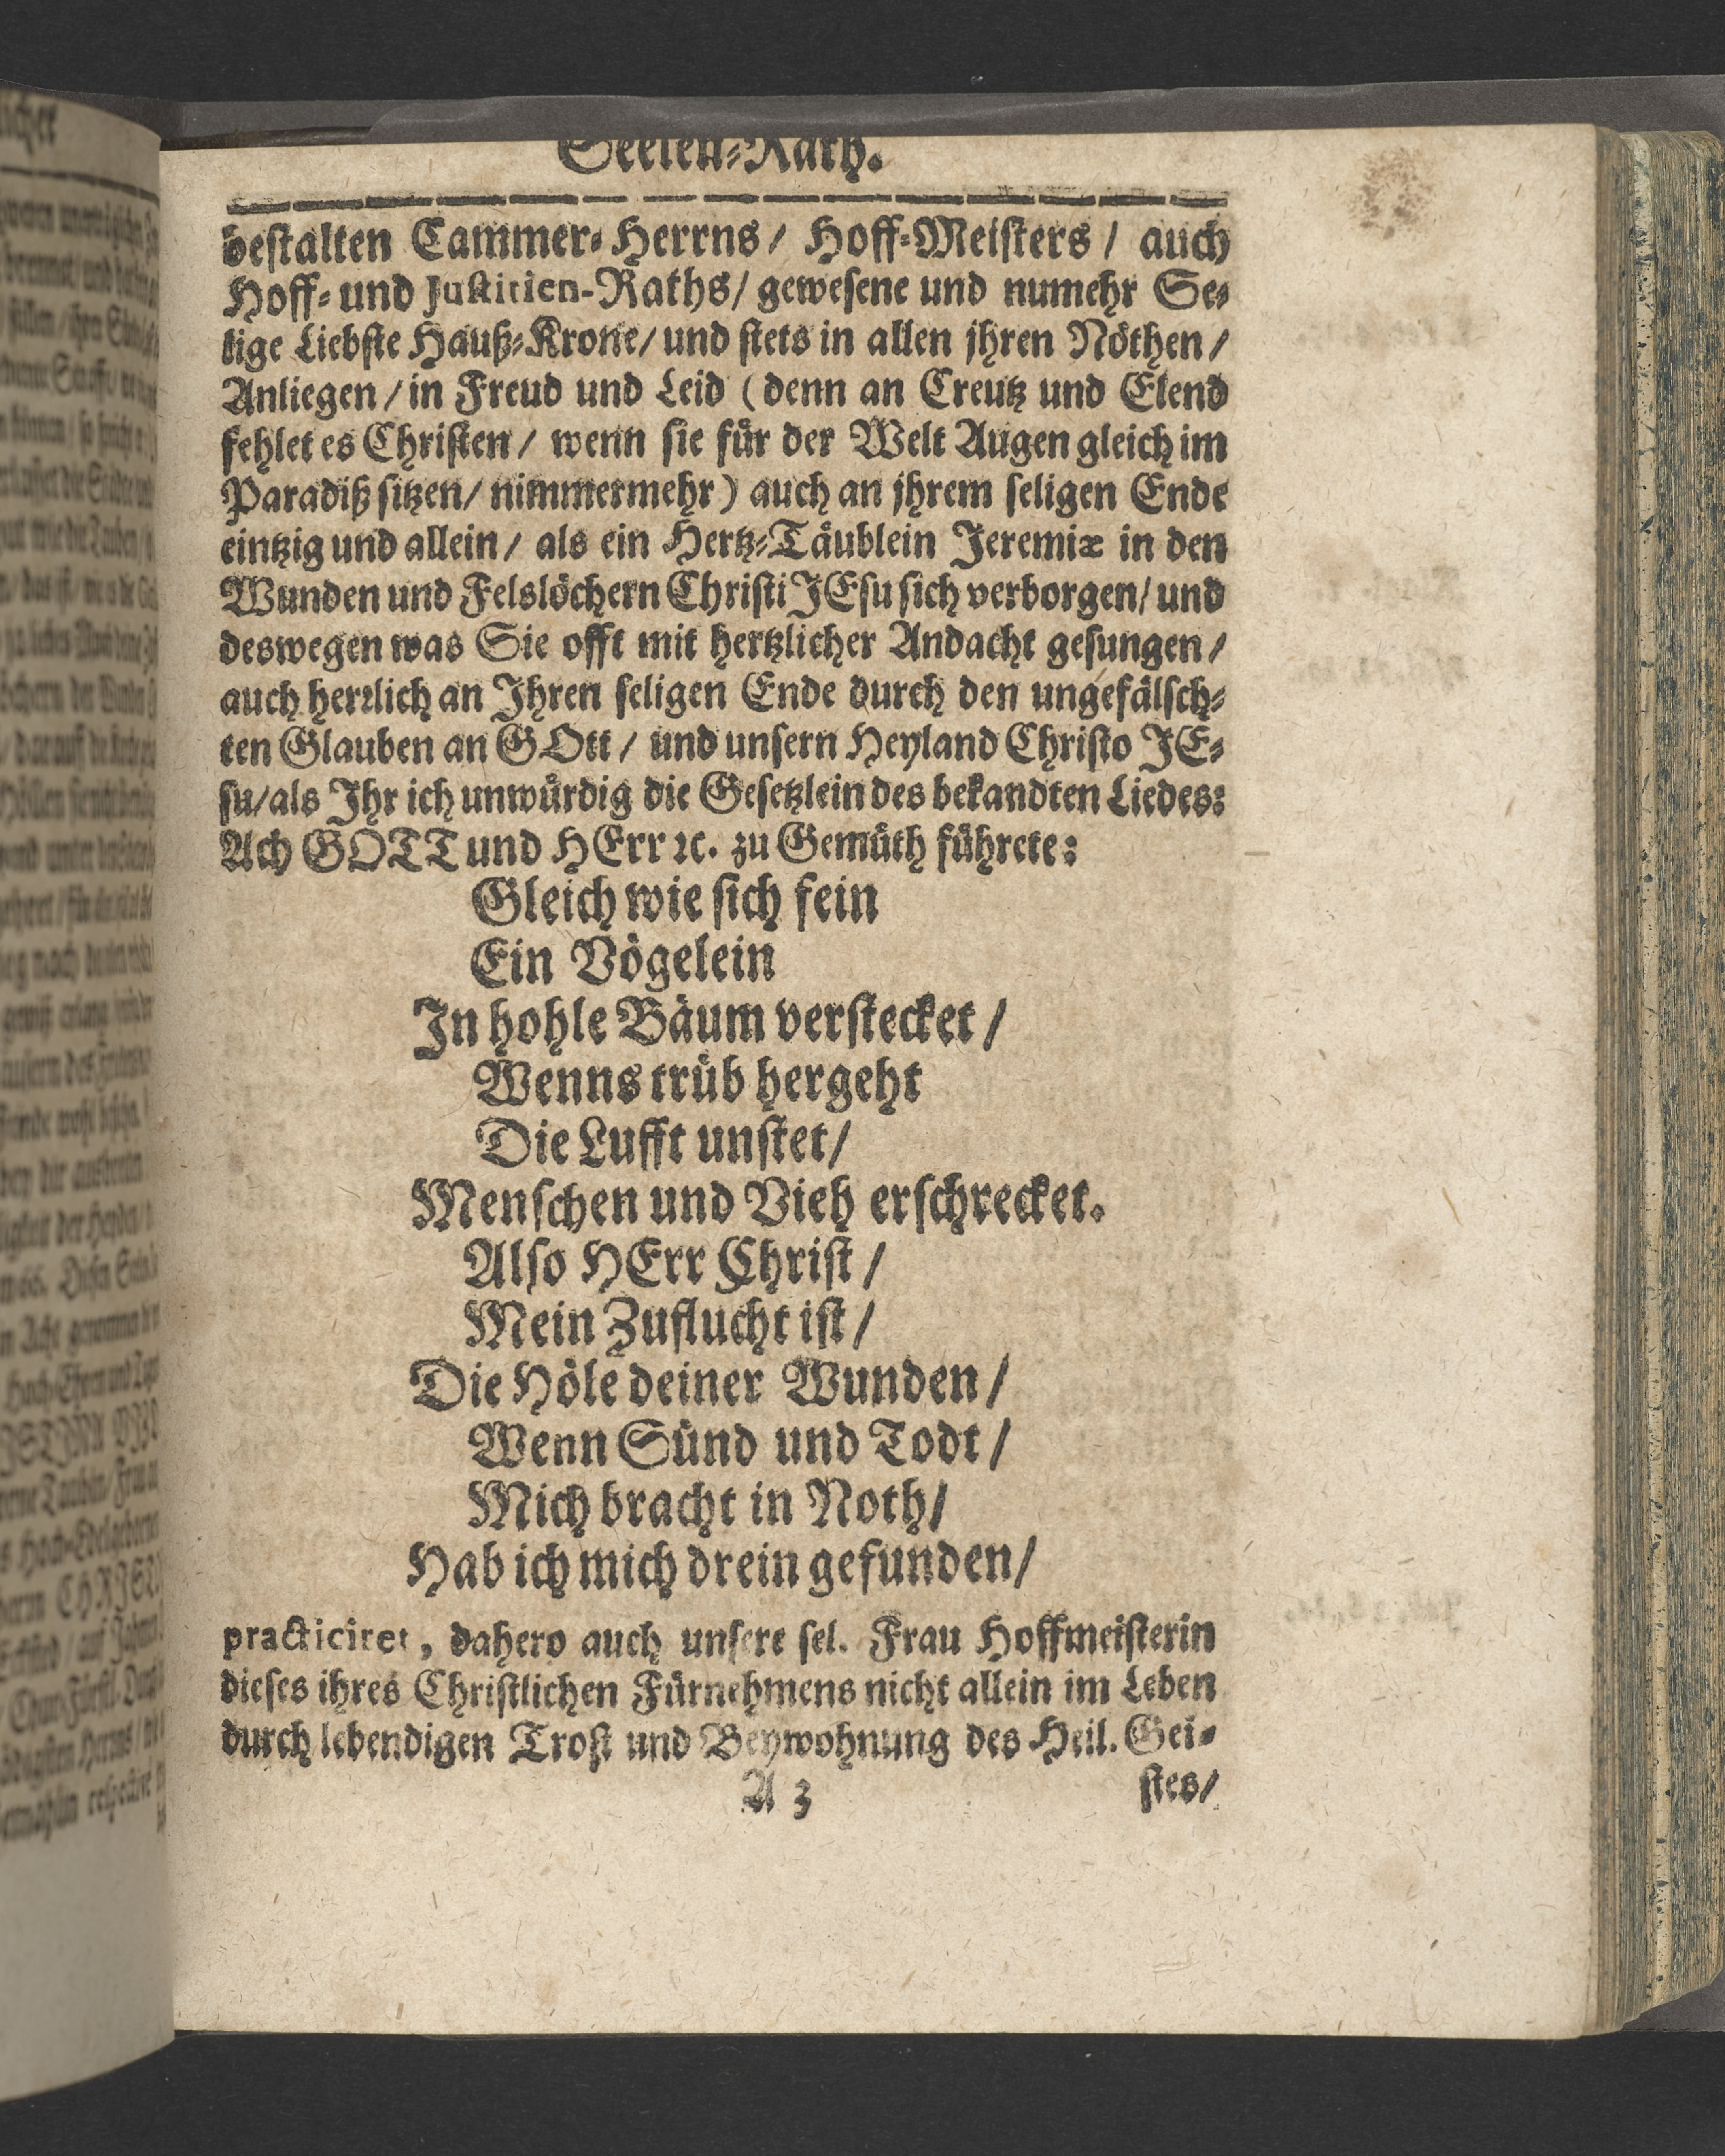 Seelen-Rath.
bestalten Cammer-Herrns / Hoff-Meisters / auch
Hoff- und Justitien-Raths / gewesene und numehr Se-
lige Liebste Hauß-Krone / und stets in allen jhren Nöthen /
Anliegen / in Freud und Leid ( denn an Creutz und Elend
fehlet es Christen / wenn sie für der Welt Augen gleich im
Paradiß sitzen / nimmermehr ) auch an jhrem seligen Ende
eintzig und allein / als ein Hertz-Täublein Jeremiæ in den
Wunden und Felslöchern Christi JEsu sich verborgen / und
deswegen was Sie offt mit hertzlicher Andacht gesungen /
auch herrlich an Ihren seligen Ende durch den ungefälsch-
ten Glauben an GOtt / und unsern Heyland Christo JE-
su / als Ihr ich unwürdig die Gesetzlein des bekandten Liedes:
Ach GOTT und HErr ꝛc. zu Gemüth führete:
Gleich wie sich fein
Ein Vögelein
In hohle Bäum verstecket /
Wenns trüb hergeht
Die Lufft unstet /
Menschen und Vieh erschrecket.
Also HErr Christ /
Mein Zuflucht ist /
Die Höle deiner Wunden /
Wenn Sünd und Todt /
Mich bracht in Noth /
Hab ich mich drein gefunden /
practiciret, dahero auch unsere sel. Frau Hoffmeisterin
dieses ihres Christlichen Fürnehmens nicht allein im Leben
durch lebendigen Trost und Beywohnung des Heil. Gei-
A 3 stes /